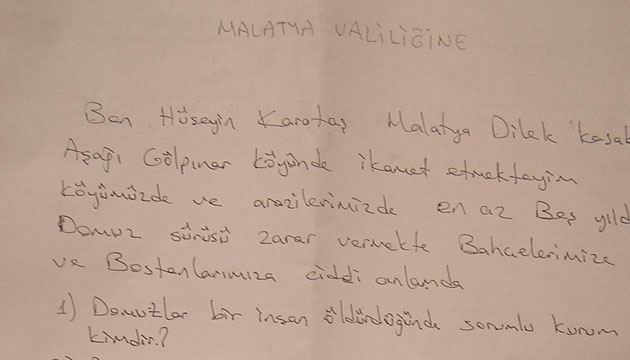 MALATYA VALİLİĞİNE
Ben Hüseyin Karataş Malatya Dilek kasab
Aşağı Gölpınar köyünde ikamet etmekteyim
köyümüzde ve arazilerimizde en az Beş yıld
Domuz sürüsü zarar vermekte Bahçelerimize
ve Bostanlarımıza ciddi anlamda
1) Domuzlar bir insan öldürdüğünde sorumlu kurum
kimdir.?